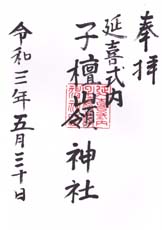 奉拝
延喜式内
子檀嶺神社
令和三年五月三十日